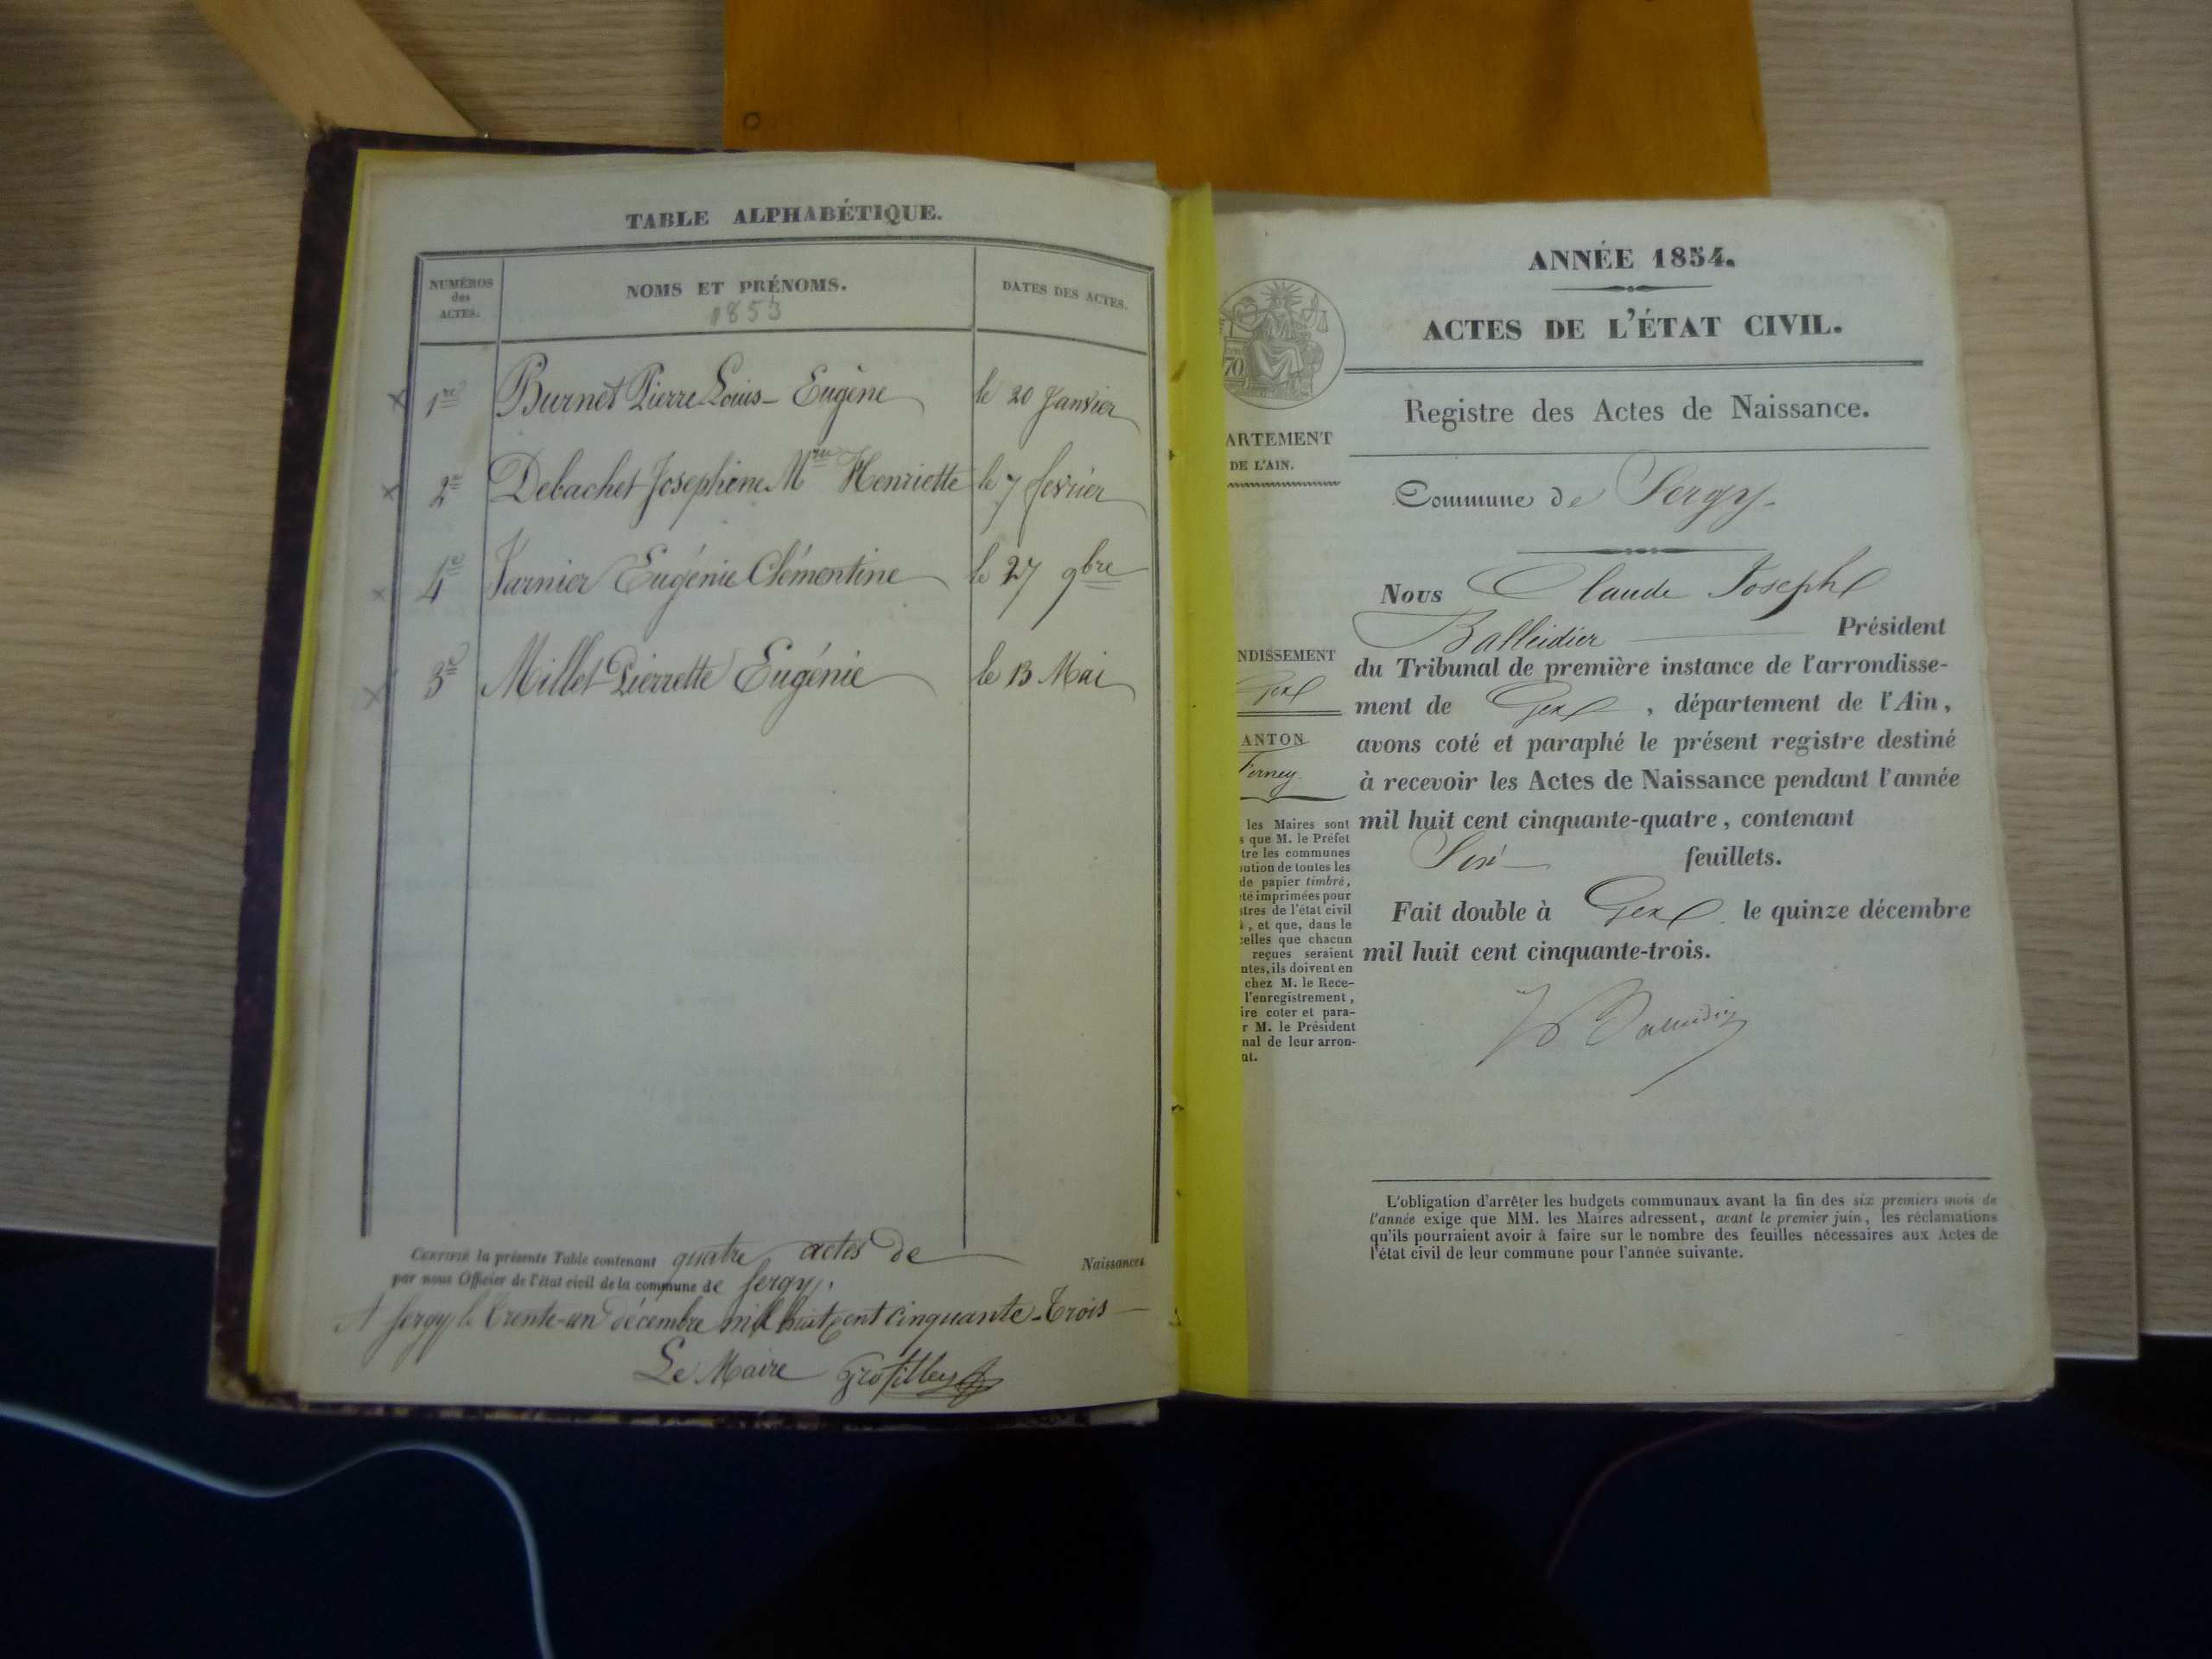 TABLE ALPHABÉTIQUE.
NUMÉROS
des
ACTES.
NOMS ET PRÉNOMS.
1853
DATES DES ACTES.
1re Burnet Pierre Louis-Eugène le 20 Janvier
2e Debachet Josephine Mrie Henriette le 7 fevrier
4e Eugénie Clémentine le 27 9bre
3e Millet Pierrette Eugénie le 13 Mai
CERTIFIÉ la présente Table contenant quatre actes de Naissances
par nous Officier de l'état civil de la commune de Sergy.
A Sergy le trente-un décembre mil huit cent cinquante-trois
Le Maire Grosfilley
ANNÉE 1854.
ACTES DE L'ÉTAT CIVIL.
Registre des Actes de Naissance.
70
ARTEMENT
DE L'AIN.
Commune de Sergy.
Nous Claude Joseph
Balleidier Président
du Tribunal de première instance de l'arrondisse-
ment de Gex, département de l'Ain,
avons coté et paraphé le présent registre destiné
à recevoir les Actes de Naissance pendant l'année
mil huit cent cinquante-quatre, contenant
Six feuillets.
Fait double à Gex le quinze décembre
mil huit cent cinquante-trois.
NDISSEMENT
Gex
ANTON
Ferney.
les Maires sont
s que M. le Préfet
tre les communes
bution de toutes les
de papier timbré,
été imprimées pour
stres de l'état civil
, et que, dans le
celles que chacun
reçues seraient
ntes, ils doivent en
chez M. le Rece-
l'enregistrement,
ire coter et para-
r M. le Président
nal de leur arron-
nt.
L'obligation d'arrêter les budgets communaux avant la fin des six premiers mois de
l'année exige que MM. les Maires adressent, avant le premier juin, les réclamations
qu'ils pourraient avoir à faire sur le nombre des feuilles nécessaires aux Actes de
l'état civil de leur commune pour l'année suivante.